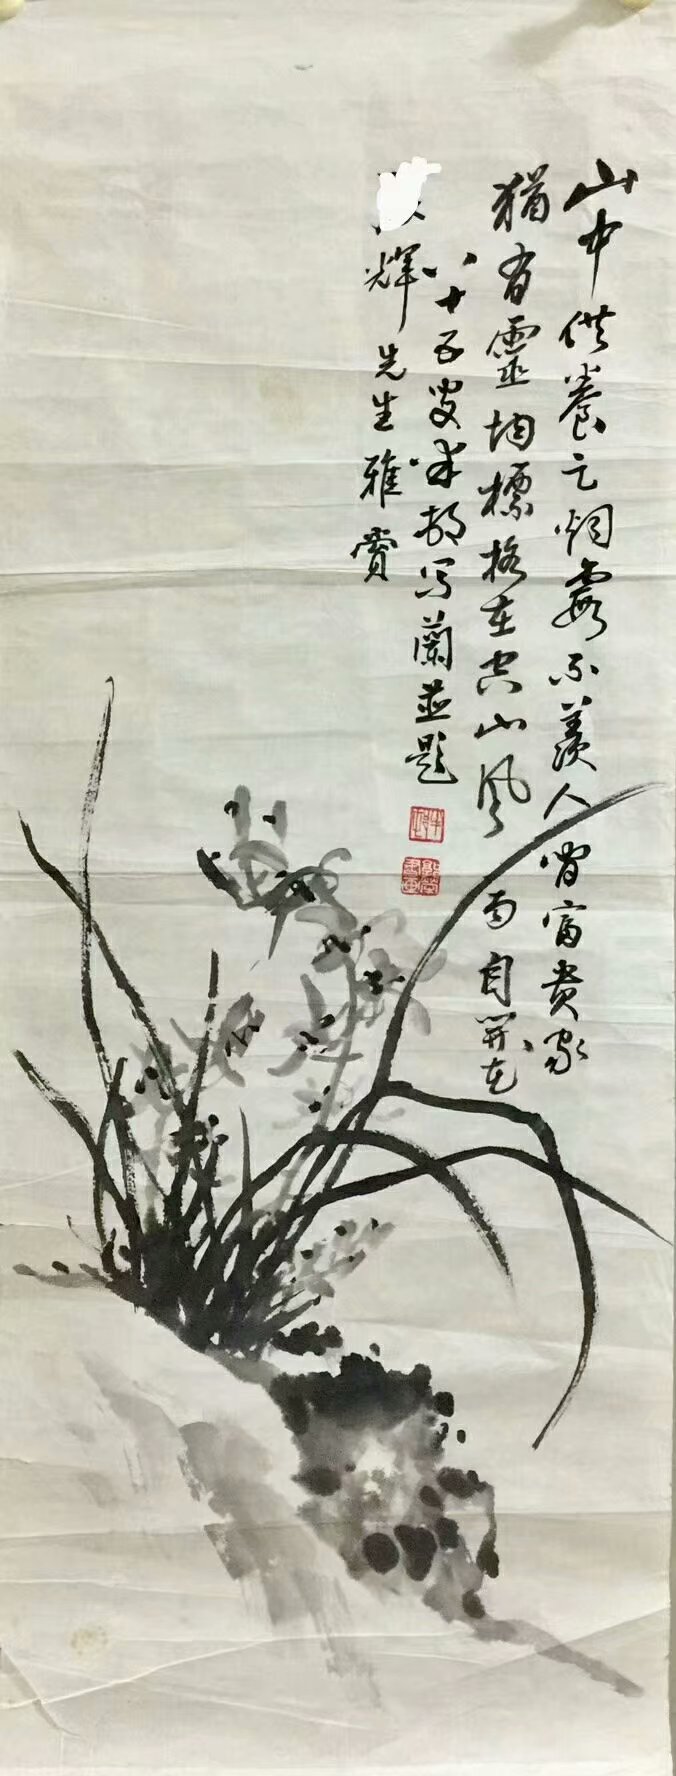 山中供養足烟霞不羨人間富貴家
猶有靈均標格在空山風雨自開花
八十五叟半邨写蘭並題
輝先生雅賞